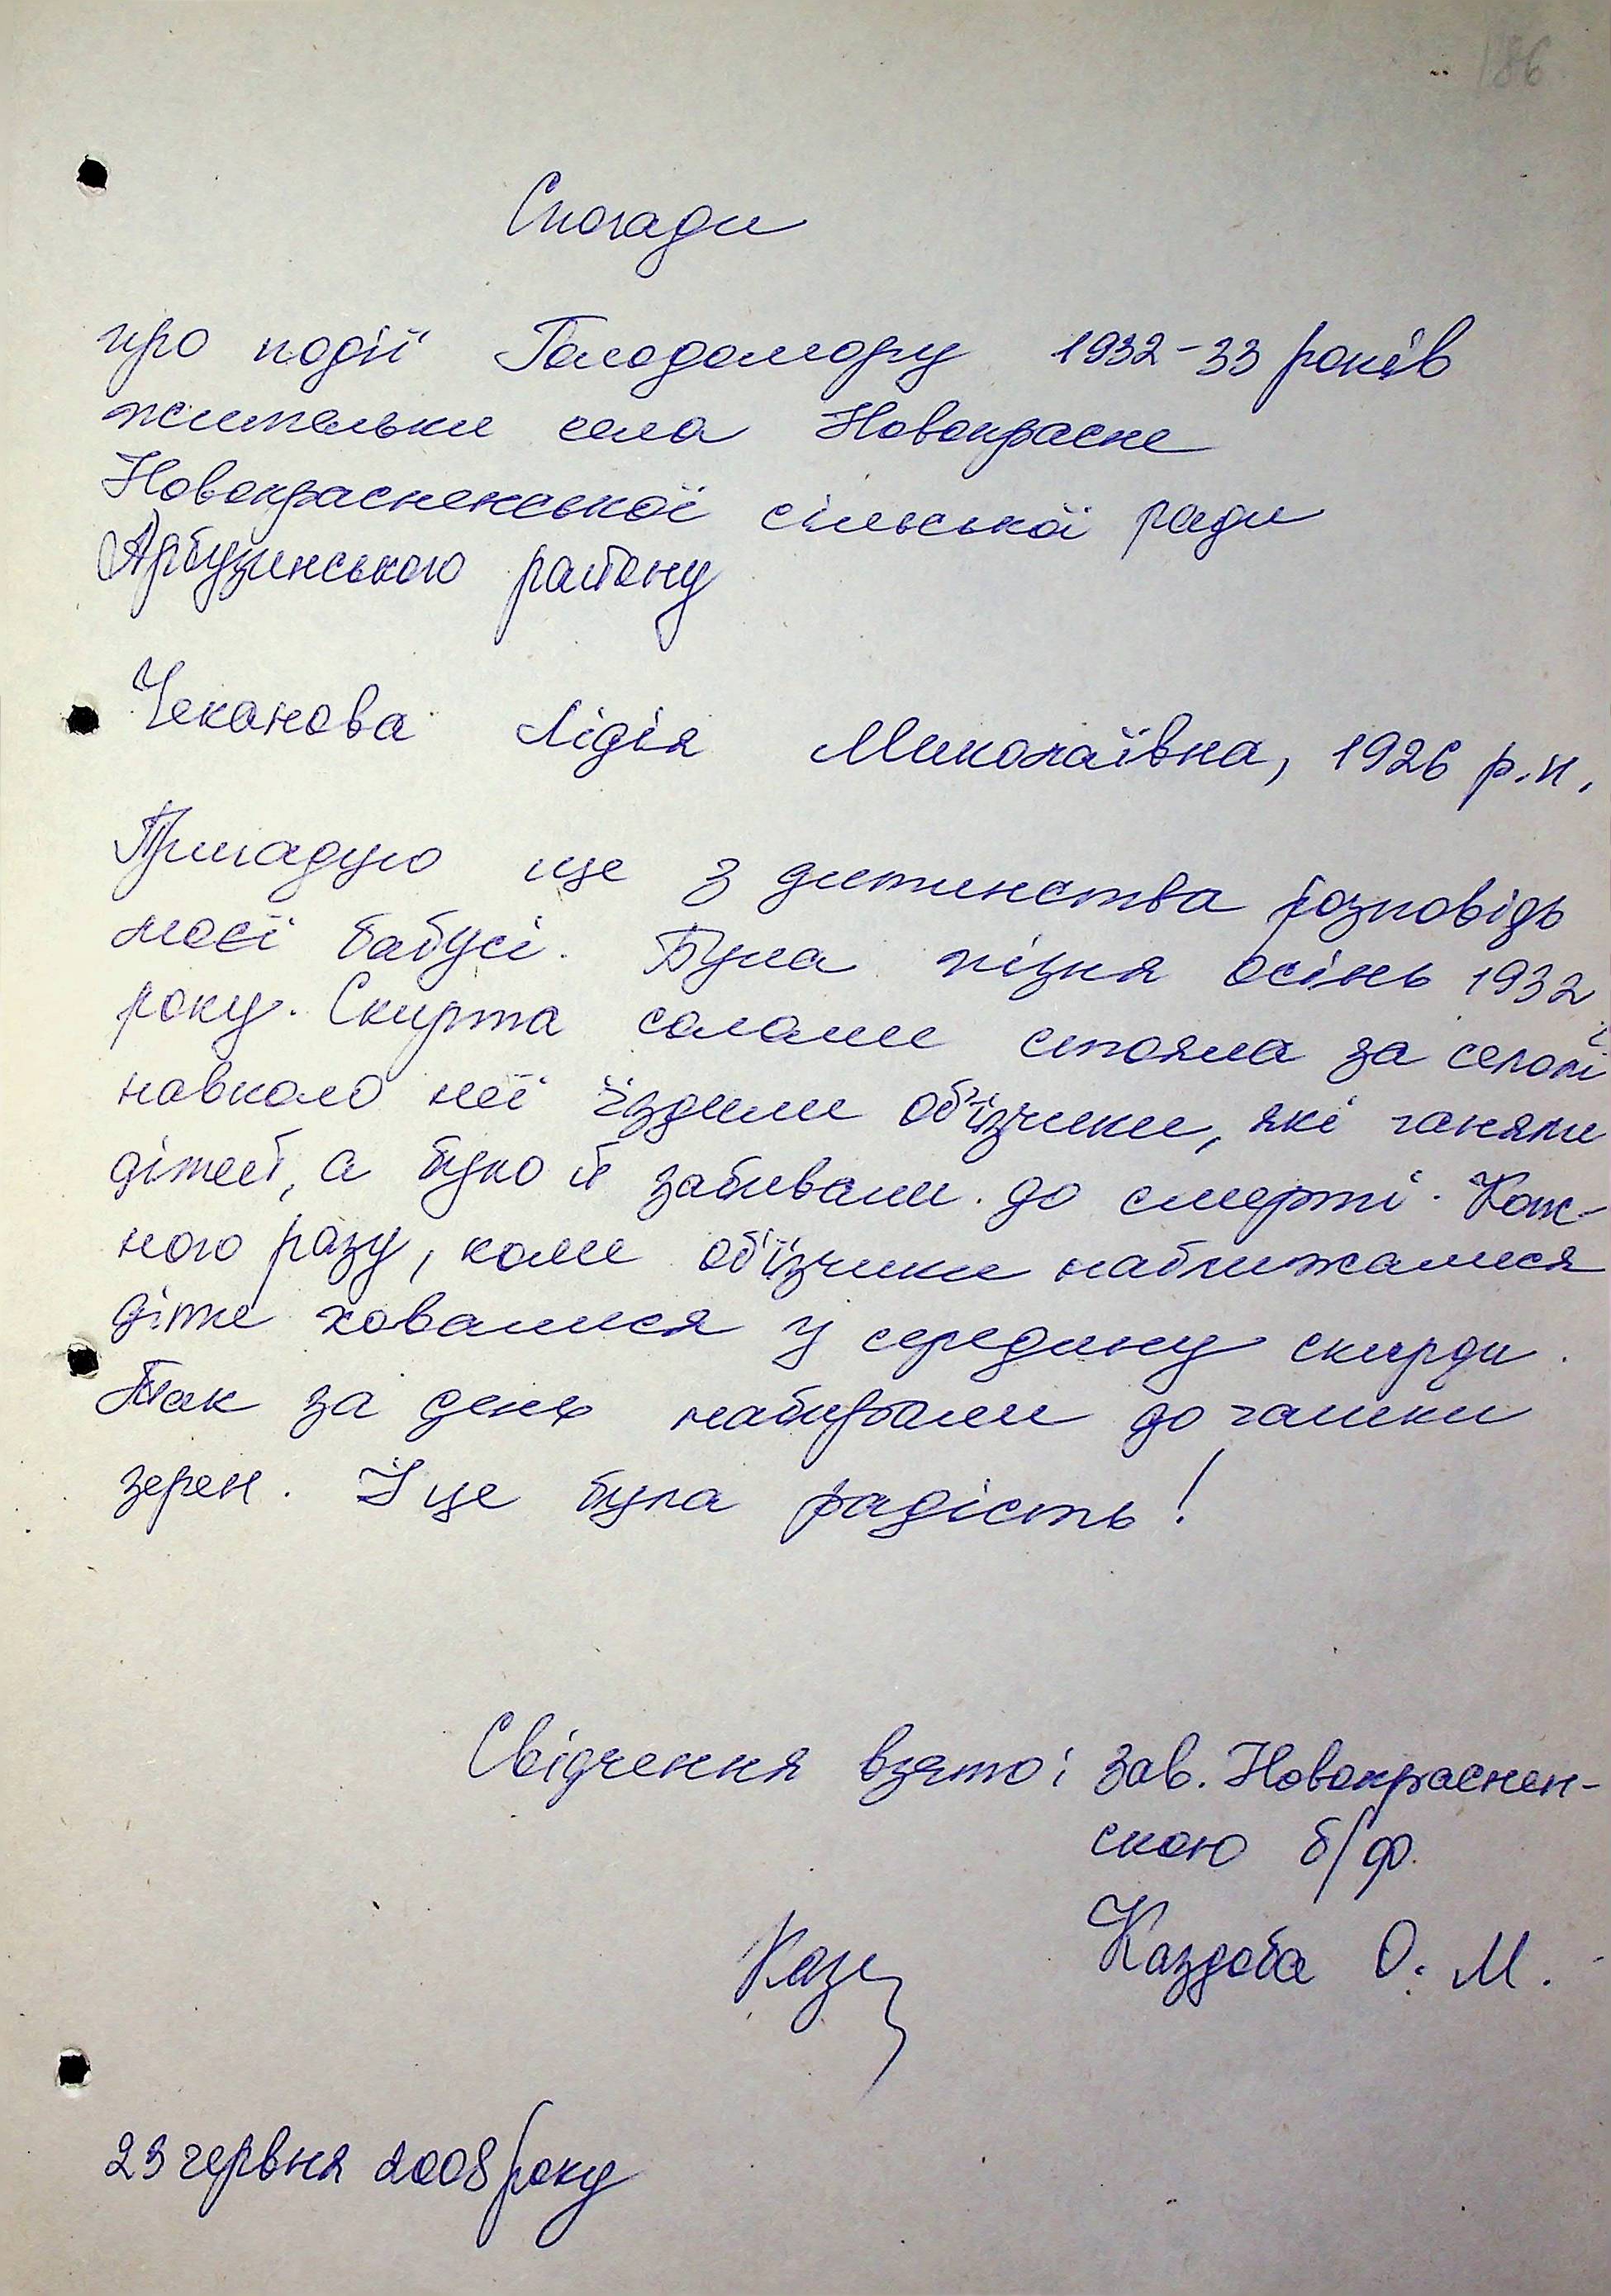 186
Спогади
про події Голодомору 1932-33 років
жительки села Новокрасне
Новокрасненської сільської ради
Арбузинського району
Чеканова Лідія Миколаївна, 1926 р.н.
Пригадую ще з дитинства розповідь
моєї бабусі. Була пізня осінь 1932
року. Скирта соломи стояла за селом і
навколо неї їздили об'їзчики, які ганяли
дітей, а було й забивали до смерті. Кож-
ного разу, коли об'їзчики наближалися
діти ховалися у середину скирди.
Так за день набирали до чашки
зерен. І це була радість!
Свідчення взято: зав. Новокраснен-
ською б/ф.
Каздоба О. М.
23 червня 2008 року